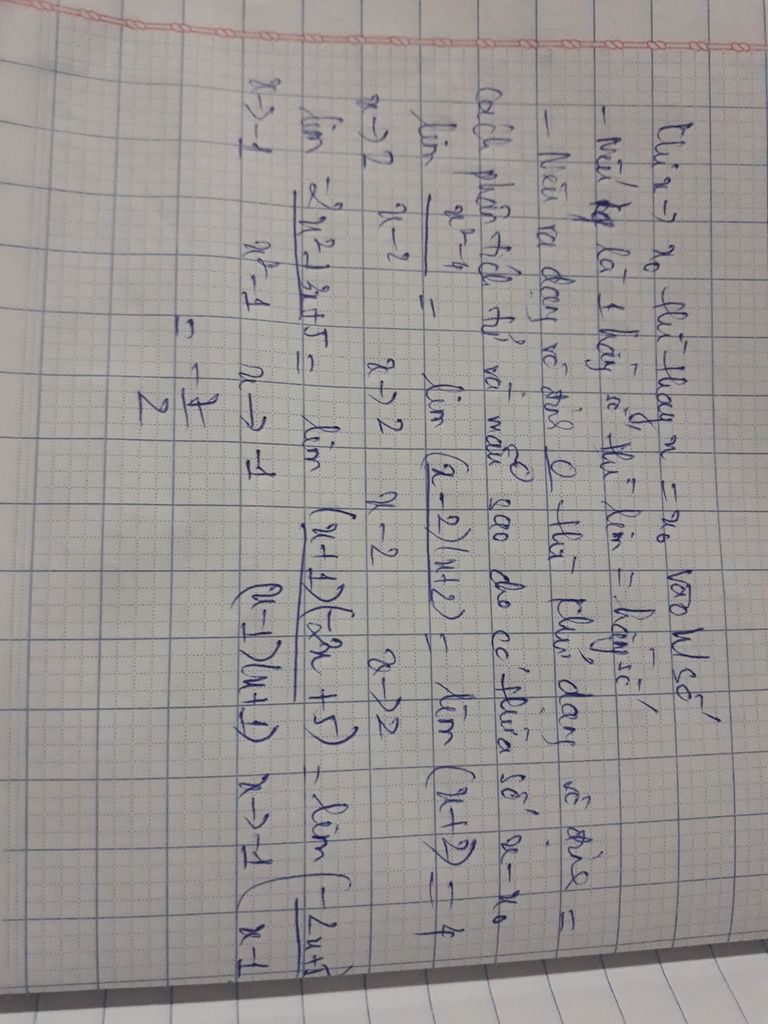 Khi x → x₀ thì thay x = x₀ vào h/số
- Nếu là 1 hằng số thì lim = hằng số
- Nếu ra dạng vô định 0/0 thì khử dạng vô định =
cách phân tích tử và mẫu sao cho có thừa số x - x₀
lim x²-4 / x-2 = lim (x-2)(x+2) / x-2 = lim (x+2) = 4
x→2 x→2 x→2
lim -2x²+3x+5 / x²-1 = lim (x+1)(-2x+5) / (x-1)(x+1) = lim (-2x+5 / x-1
x→-1 x→-1 x→-1
= -7/2